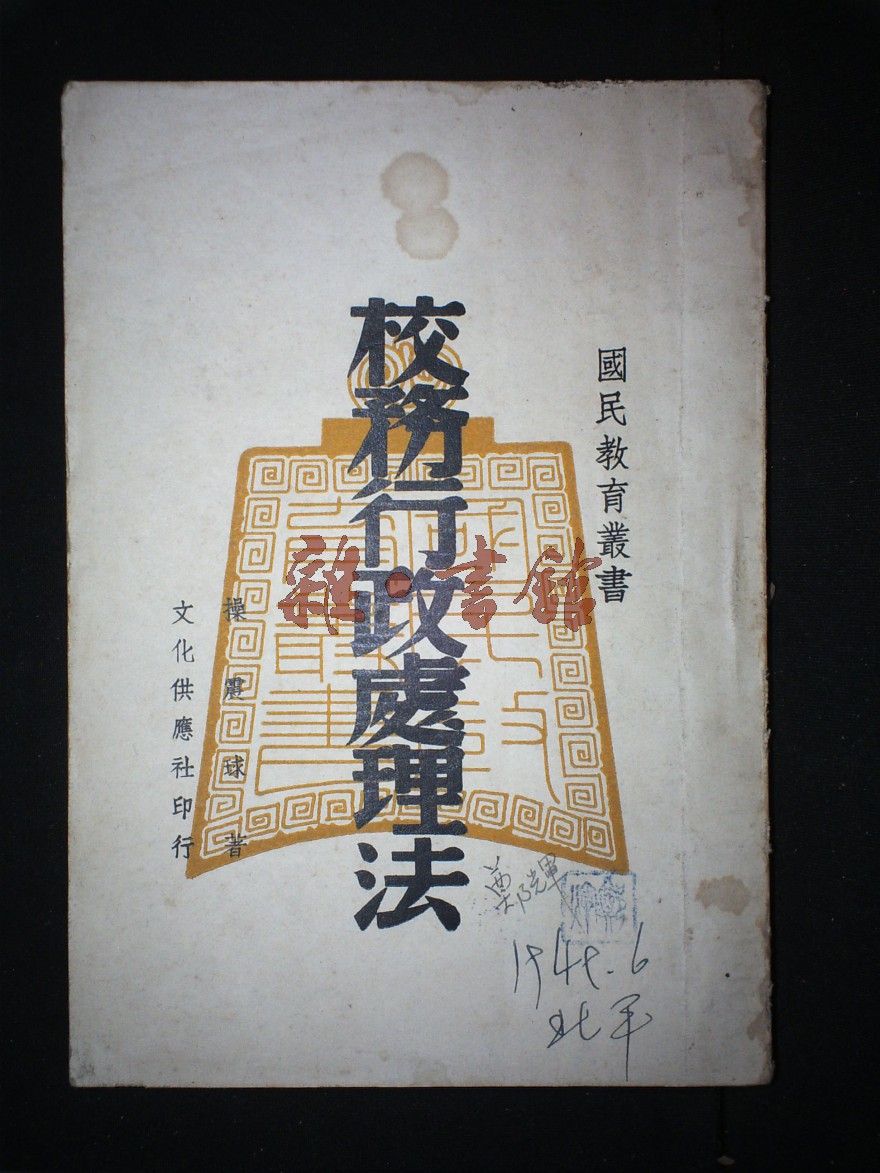 國民教育叢書
校務行政處理法
操震球著
文化供應社印行
雜·書館
1949.6
北平